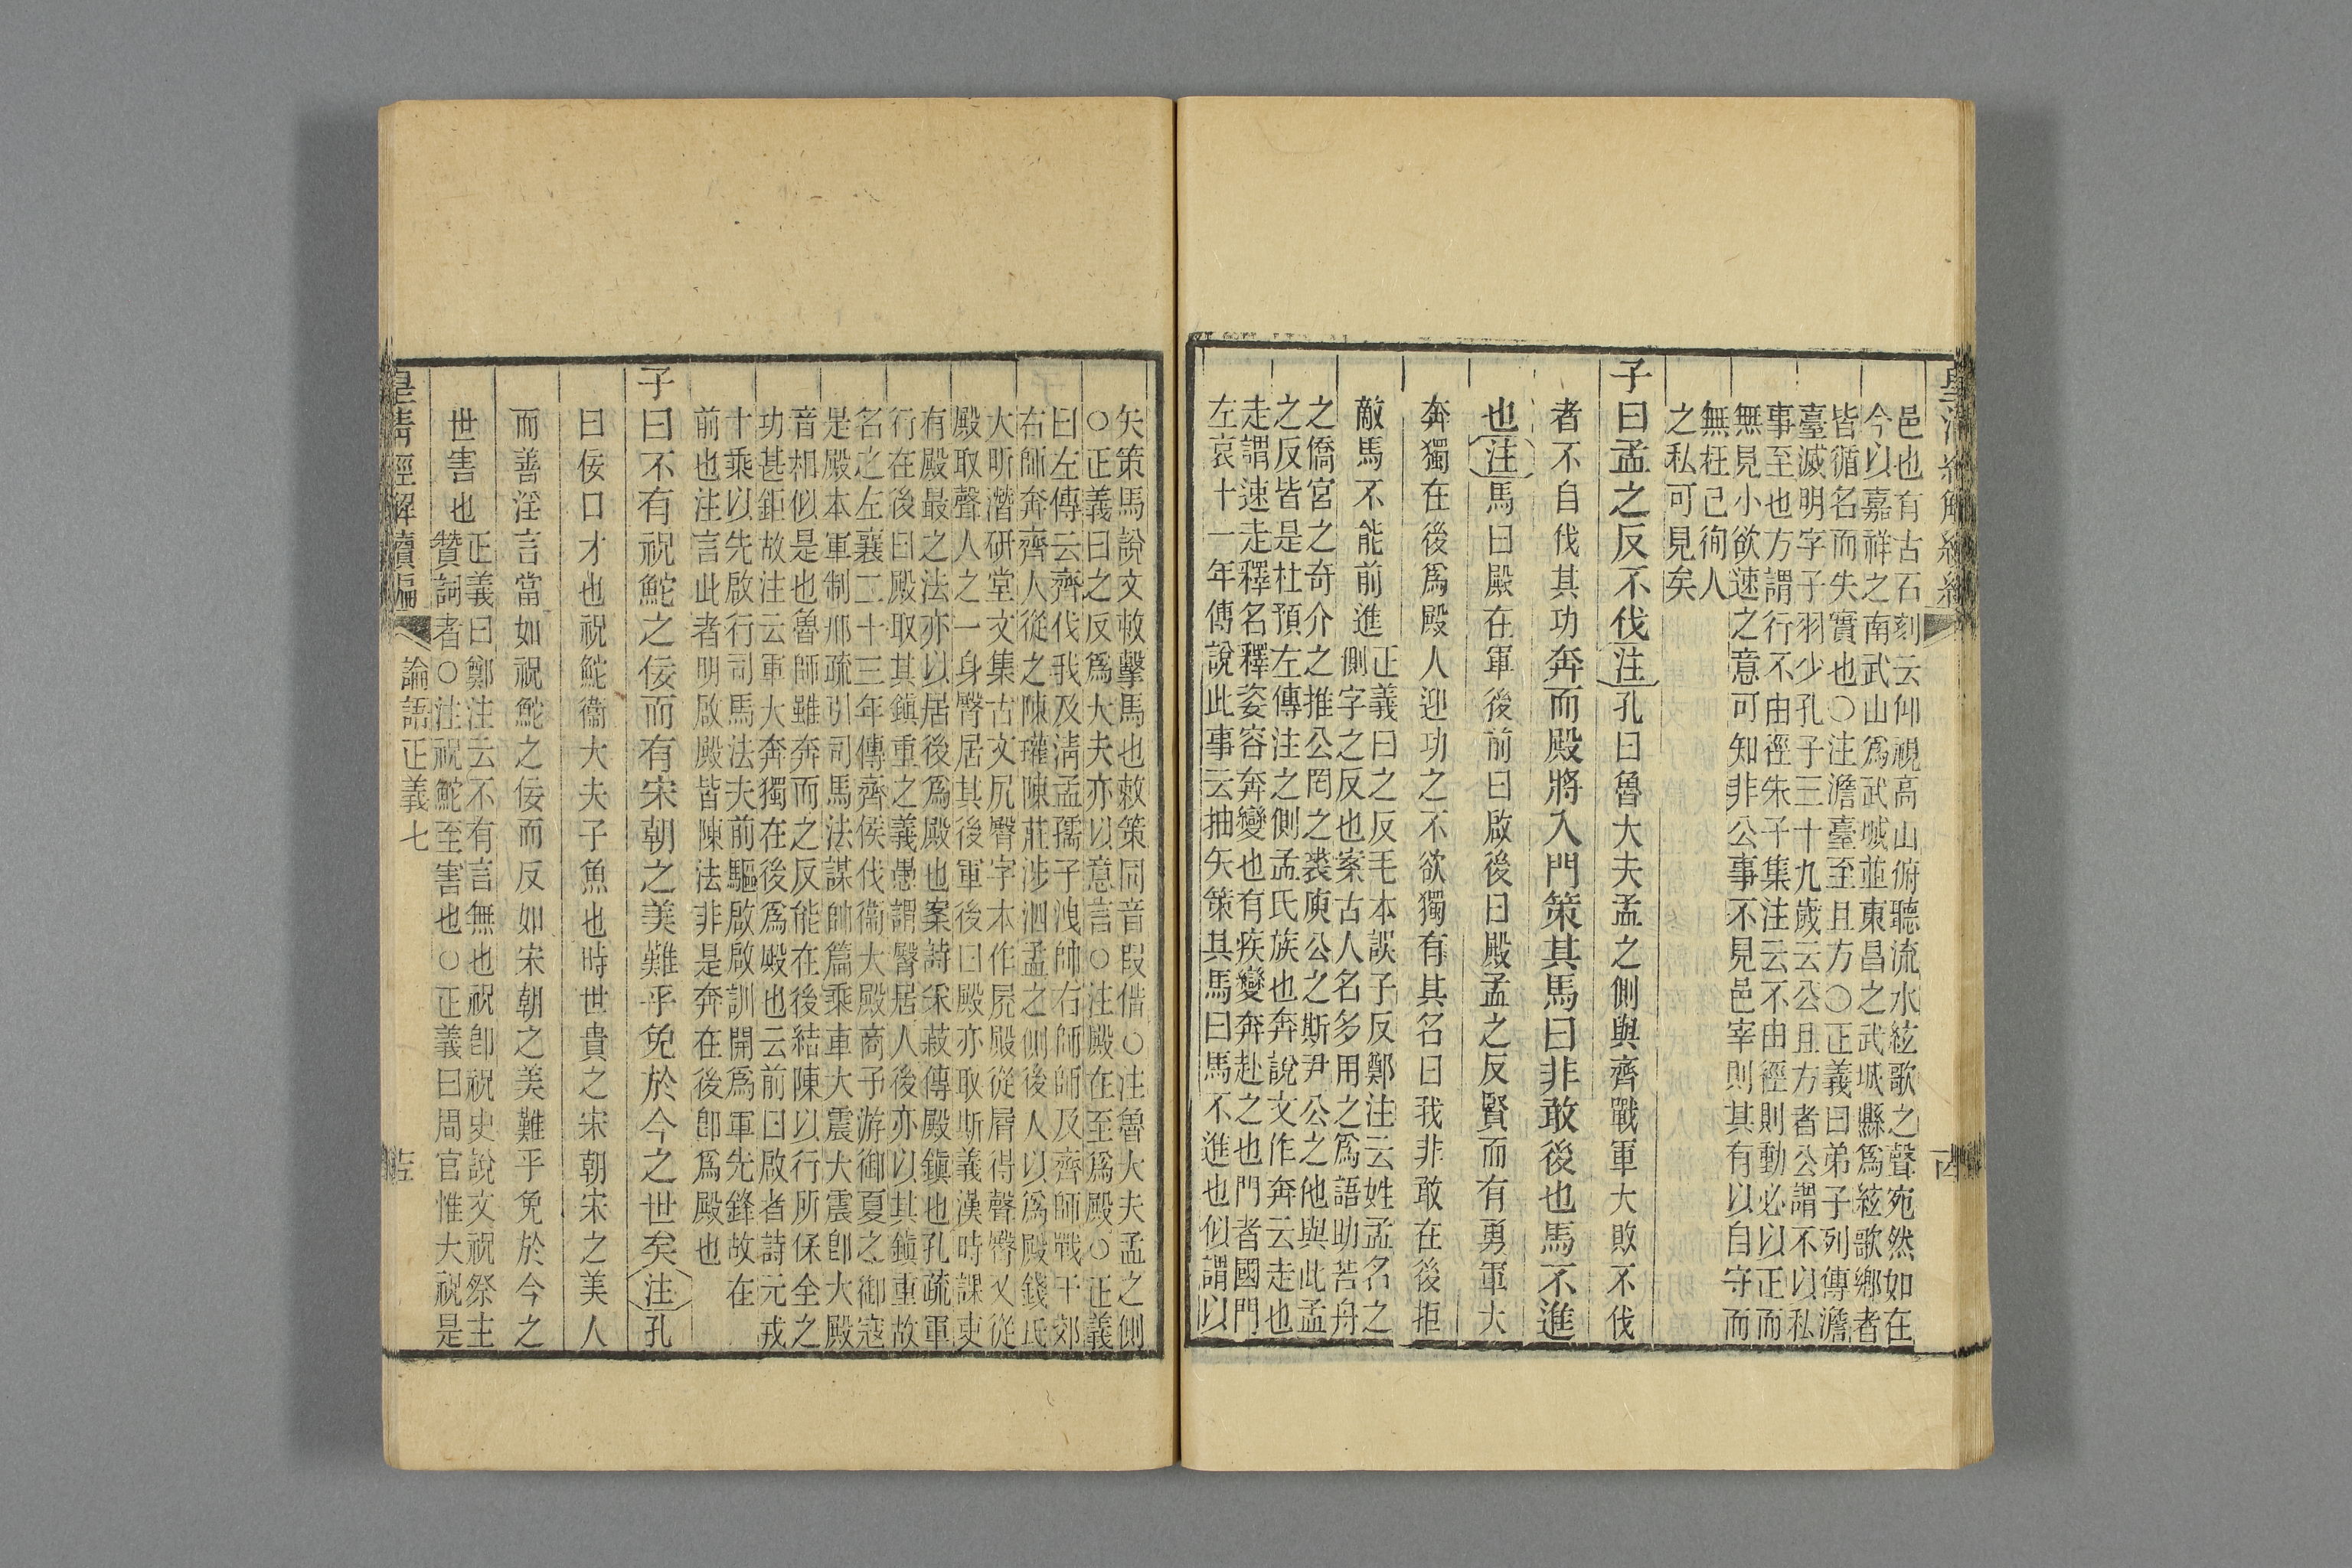 邑也有古石刻云仰視高山俯聽流水絃歌之聲宛然如在
今以嘉祥之南武山爲武城並東昌之武城縣爲絃歌鄉者
皆循名而失實也○注澹臺至且方○正義曰弟子列傳澹
臺滅明字子羽少孔子三十九歲云公且方者公謂不以私
事至也方謂行不由徑朱子集注云不由徑則動必以正而
無見小欲速之意可知非公事不見邑宰則其有以自守而
無枉己徇人
之私可見矣
子曰孟之反不伐注孔曰魯大夫孟之側與齊戰軍大敗不伐
者不自伐其功奔而殿將入門策其馬曰非敢後也馬不進
也注馬曰殿在軍後前曰啟後曰殿孟之反賢而有勇軍大
奔獨在後爲殿人迎功之不欲獨有其名曰我非敢在後拒
敵馬不能前進
正義曰之反毛本誤子反鄭注云姓孟名之
側字之反也案古人名多用之爲語助若舟
之僑宮之奇介之推公罔之裘庾公之斯尹公之他與此孟
之反皆是杜預左傳注之側孟氏族也奔說文作奔云走也
走謂速走釋名釋姿容奔變也有疾變奔赴之也門者國門
左哀十一年傳說此事云抽矢策其馬曰馬不進也似謂以
矢策馬說文敕擊馬也敕策同音叚借○注魯大夫孟之側
○正義曰之反爲大夫亦以意言○注殿在至爲殿○正義
曰左傳云齊伐我及清孟孺子洩帥右師師及齊師戰于郊
右師奔齊人從之陳瓘陳莊涉泗孟之側後人以爲殿錢氏
大昕潛研堂文集古文𡱂臀字本作𡱂殿從𡱂得聲臀又從
殿取聲人之一身臀居其後軍後曰殿亦取斯義漢時課吏
有殿最之法亦以居後爲殿也案詩采菽傳殿鎮也孔疏軍
行在後曰殿取其鎮重之義愚謂臀居人後亦以其鎮重故
名之左襄二十三年傳齊侯伐衞大殿商子游御夏之御寇
是殿本軍制邢疏引司馬法謀帥篇乘車大震大震卽大殿
音相似是也魯師雖奔而之反能在後結陳以行所保全之
功甚鉅故注云軍大奔獨在後爲殿也云前曰啟者詩元戎
十乘以先啟行司馬法夫前驅啟啟訓開爲軍先鋒故在
前也注言此者明啟殿皆陳法非是奔在後卽爲殿也
子曰不有祝鮀之佞而有宋朝之美難乎免於今之世矣注孔
曰佞口才也祝鮀衞大夫子魚也時世貴之宋朝宋之美人
而善淫言當如祝鮀之佞而反如宋朝之美難乎免於今之
世害也
正義曰鄭注云不有言無也祝卽祝史說文祝祭主
贊詞者○注祝鮀至害也○正義曰周官惟大祝是
皇清經解續編 論語正義七